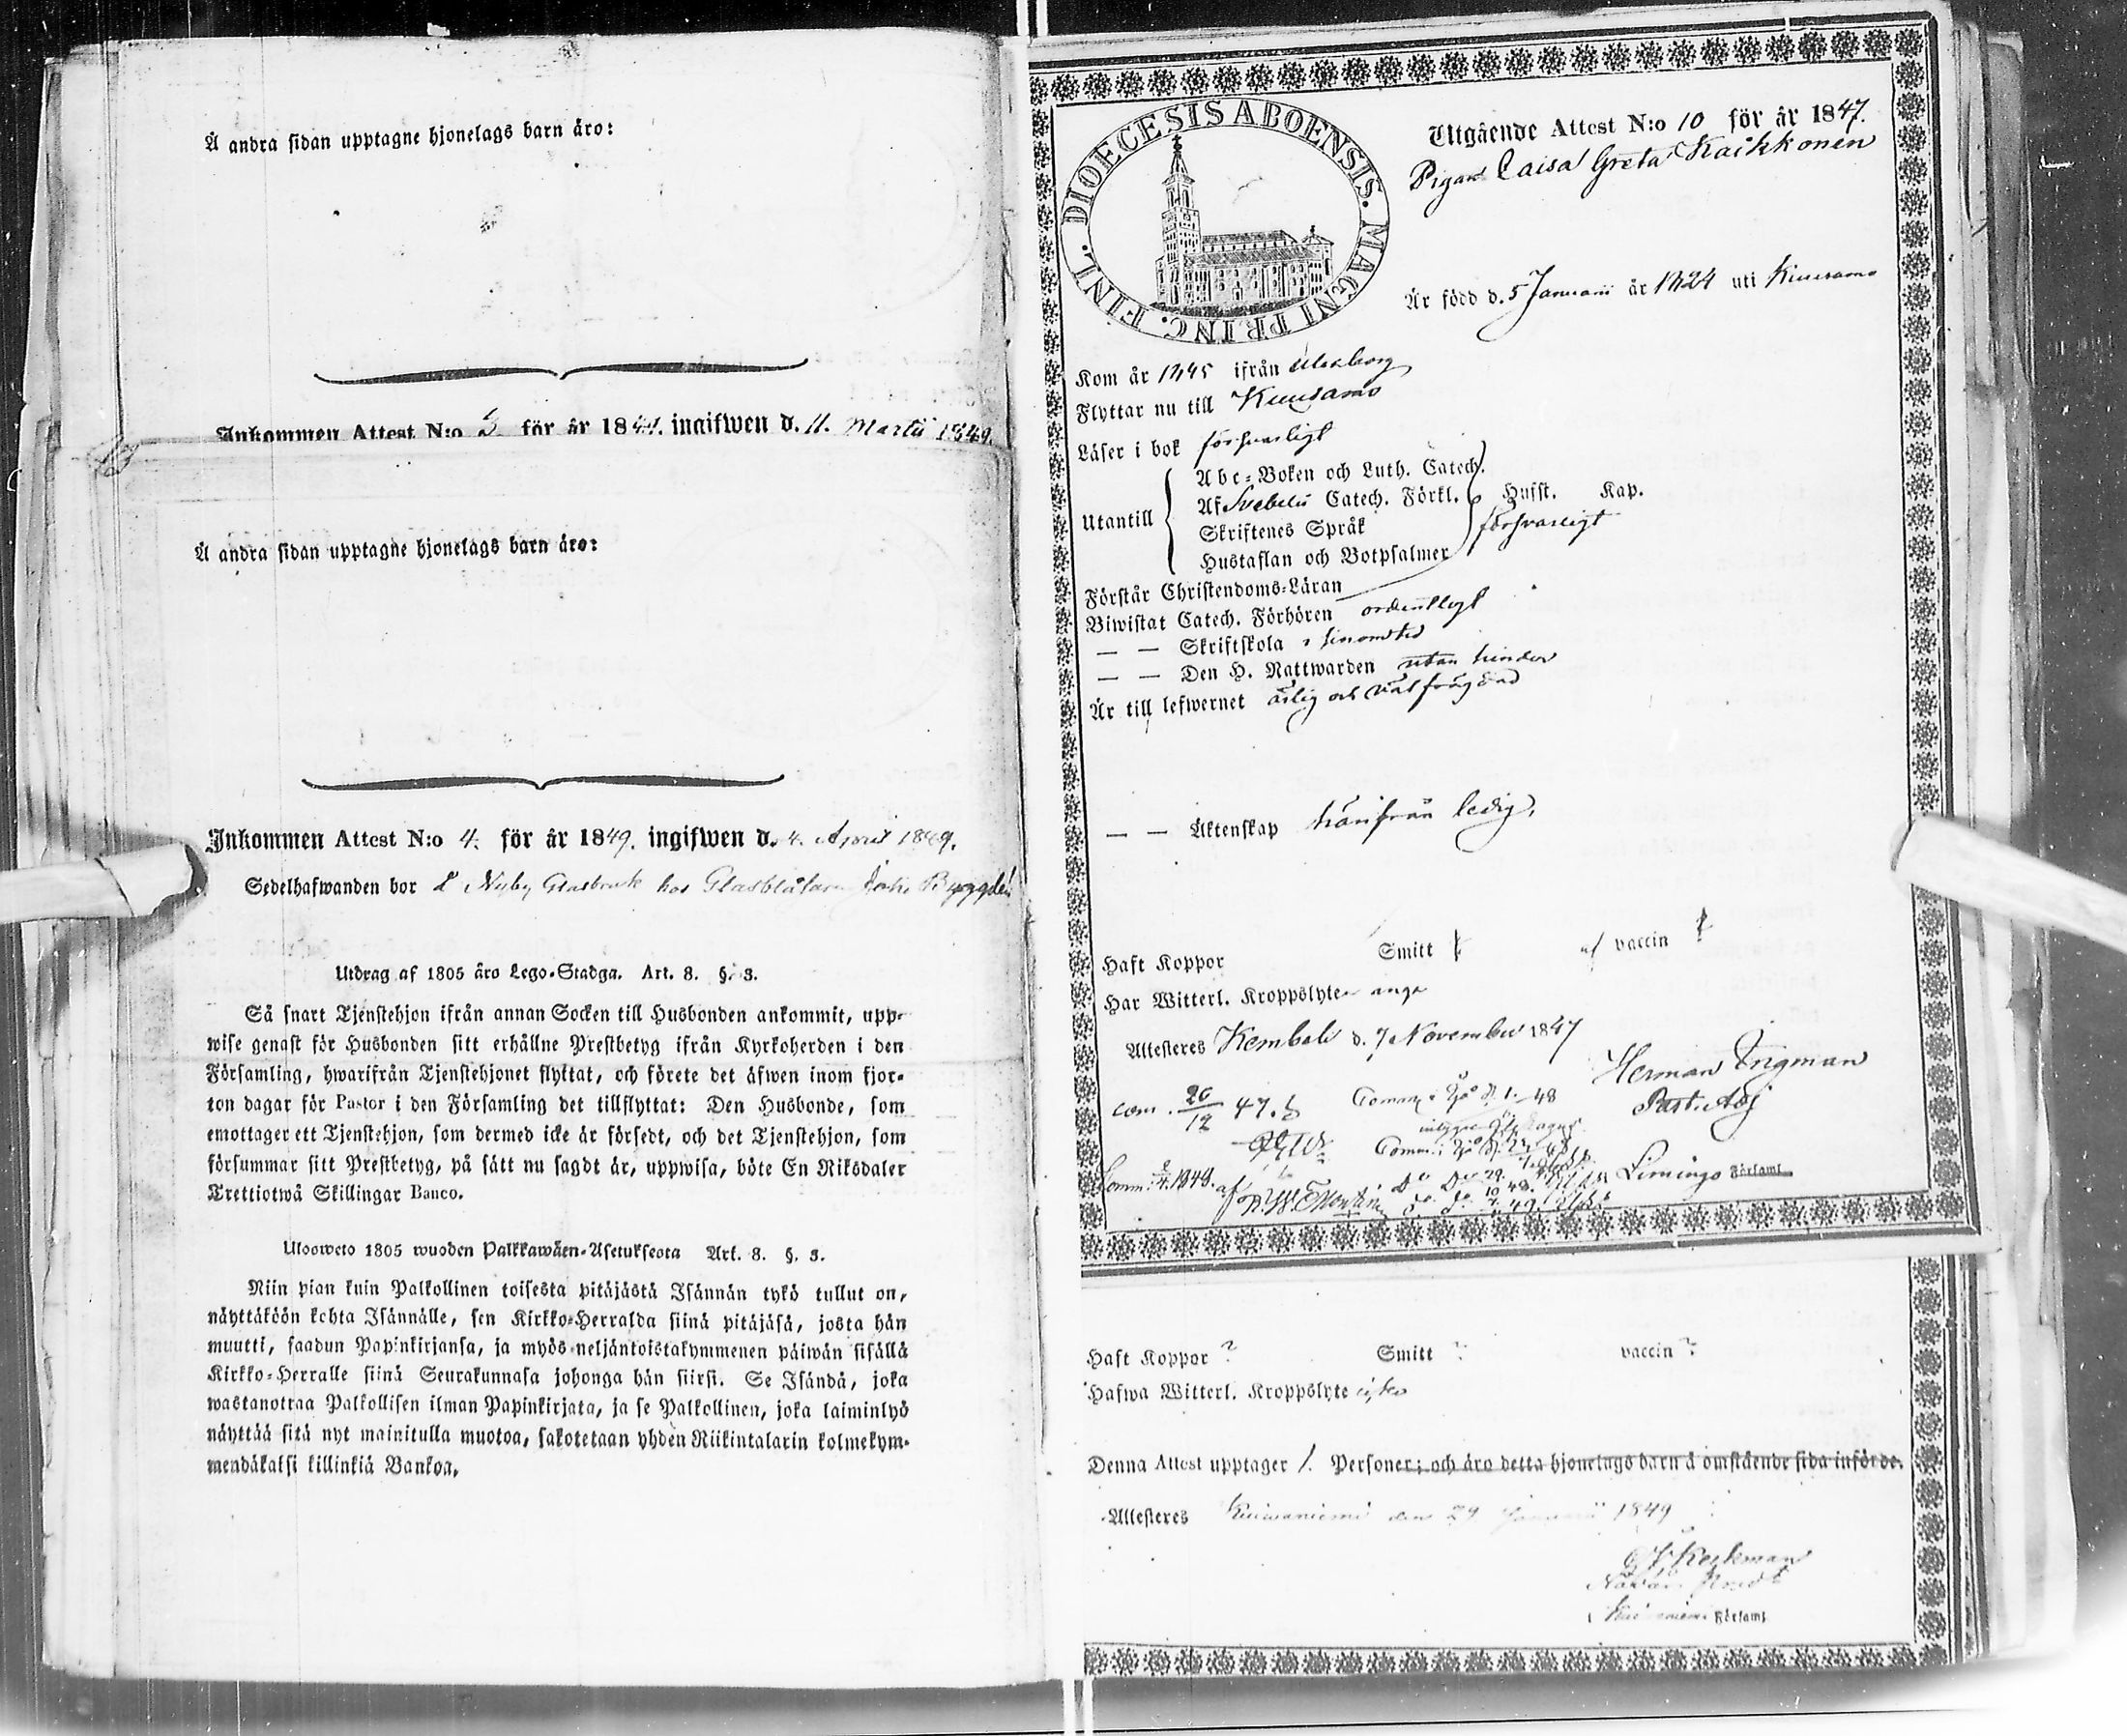 Å andra sidan upptagne hjonelags barn äro:
Inkommen Attest N:o 3. för år 1849. ingifwen d. 11. Martii 1849.
Å andra sidan upptagne hjonelags barn äro:
Inkommen Attest N:o 4. för år 1849. ingifwen d. 4. April 1849.
Sedelhafwanden bor å Nyby Glasbruk hos Glasblåsaren
Utdrag af 1805 åro Lego-Stadga. Art. 8. §. 3.
Så snart Tjenstehjon ifrån annan Socken till Husbonden ankommit, upp-
wise genast för Husbonden sitt erhållne Prestbetyg ifrån Kyrkoherden i den
Församling, hwarifrån Tjenstehjonet flyttat, och förete det äfwen inom fjor-
ton dagar för Pastor i den Församling det tillflyttat: Den Husbonde, som
emottager ett Tjenstehjon, som dermed icke är försedt, och det Tjenstehjon, som
försummar sitt Prestbetyg, på sätt nu sagdt är, uppwisa, böte En Riksdaler
Trettiotwå Skillingar Banco.
Ulosweto 1805 wuoden Palkkawäen-Asetuksesta Art. 8. §. 3.
Niin pian kuin Palkollinen toisesta pitäjästä Isännän tykö tullut on,
näyttäköön kohta Isännälle, sen Kirkko-Herralda siinä pitäjäsä, josta hän
muutti, saadun Papinkirjansa, ja myös neljäntoistakymmenen päiwän sisällä
Kirkko-Herralle siinä Seurakunnasa johonga hän siirsi. Se Isändä, joka
wastanottaa Palkollisen ilman Papinkirjata, ja se Palkollinen, joka laiminlyö
näyttää sitä nyt mainitulla muotoa, sakotetaan yhden Riikintalarin kolmekym-
mendäkaksi killinkiä Bankoa.
DIOECESIS ABOENSIS. MAGNI PRINC. FINL.
Utgående Attest N:o 10 för år 1847.
Pigan Caisa Greta Kaikkonen
Är född d. 5 Januarii år 1824 uti Kuusamo
Kom år 1845 ifrån Uleåborg
Flyttar nu till Kuusamo
Läser i bok försvarligt
Utantill
Abc-Boken och Luth. Catech.
Af Svebelii Catech. Förkl. Husst. Kap.
Skriftenes Språk försvarligt
Hustaflan och Botpsalmer
Förstår Christendoms-Läran
Biwistat Catech. Förhören ordentligt
— — Skriftskola i sinom tid
— — Den H. Nattwarden utan hinder
Är till lefwernet ärlig och välfrägdad
— — Äktenskap härifrån ledig.
Haft Koppor Smitt af vaccin
Har Witterl. Kroppslyte inga
Attesteres Kembele d. 7 November 1847
Herman Engman
Past. Adj
com. 20/12 47.
Comm. 1848.
Limingo Församl.
Haft Koppor ? Smitt ? vaccin ?
Hafwa Witterl. Kroppslyte icke
Denna Attest upptager 1. Personer; och äro detta hjonelags barn å omstående sida införde.
Attesteres Kuiwaniemi den 29 Januarii 1849
Församl